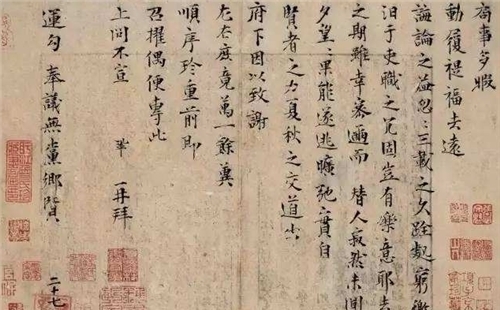 局事多暇
動履禔福去遠
誨論之益忽忽三載之久跧處窮徼
汨于吏職之冗固豈有樂意耶去
之期雖幸密邇而 替人寂然未聞
夕望望果能遂逃曠弛實自
賢者之力夏秋之交道出
府下因以致謝
左右庶竟萬一餘冀
順序珍重前即
召擢偶便專此
上問不宣 鞏 再拜
運勾 奉議無黨鄉賢
二十七